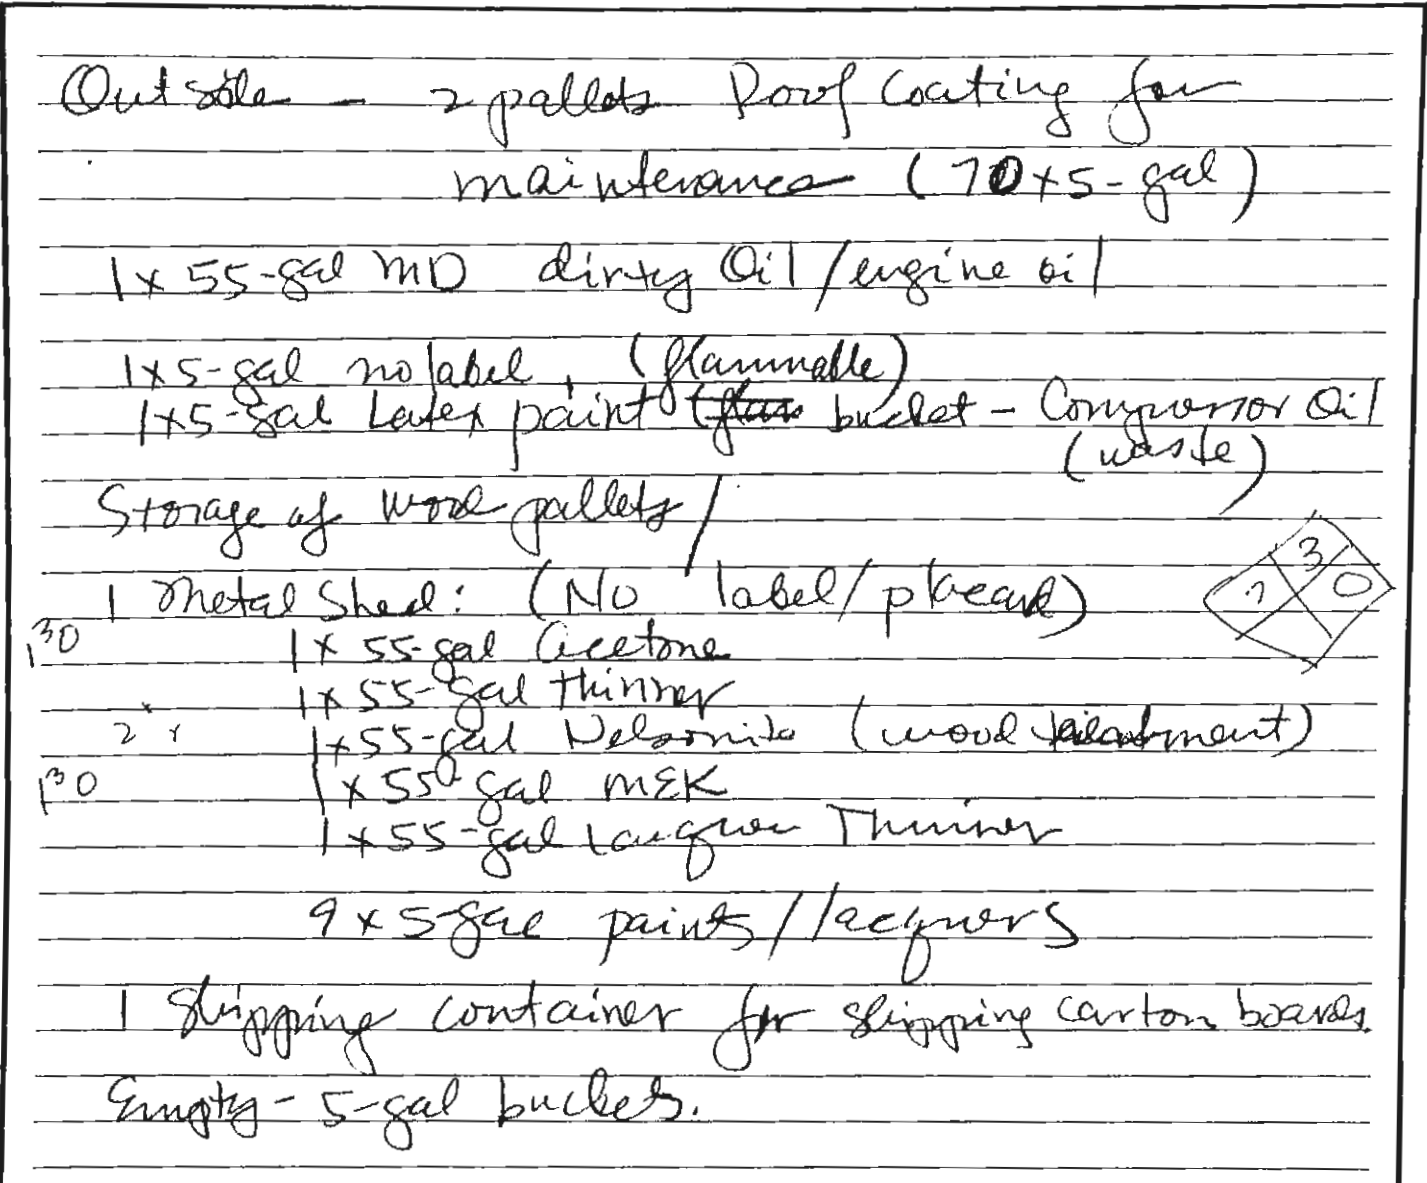 Outside - 2 pallets Roof Coating for
maintenance (70x5-gal)
1x 55-gal MD dirty Oil/engine oil
1x5-gal no label, (flammable)
1x5-gal Latex paint bucket - Compressor Oil
(waste)
Storage of wood pallets/
1 Metal Shed: (No label/placard)
3
0
130
1x 55-gal Acetone
1x 55-gal thinner
2
1x55-gal Nelsonite (wood treatment)
130
1x 55-gal MEK
1x55-gal Lacquer Thinner
9x5-gal paints/lacquers
1 Shipping container for shipping carton boards.
Empty - 5-gal buckets.